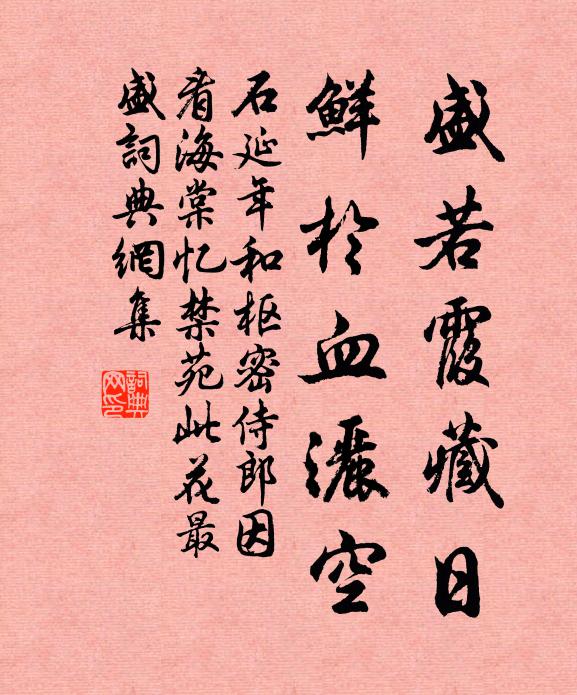 盛若霞藏日
鮮於血灑空
石延年和枢密侍郎因
看海棠忆禁苑此花最
盛詞典網集
詞典
网印